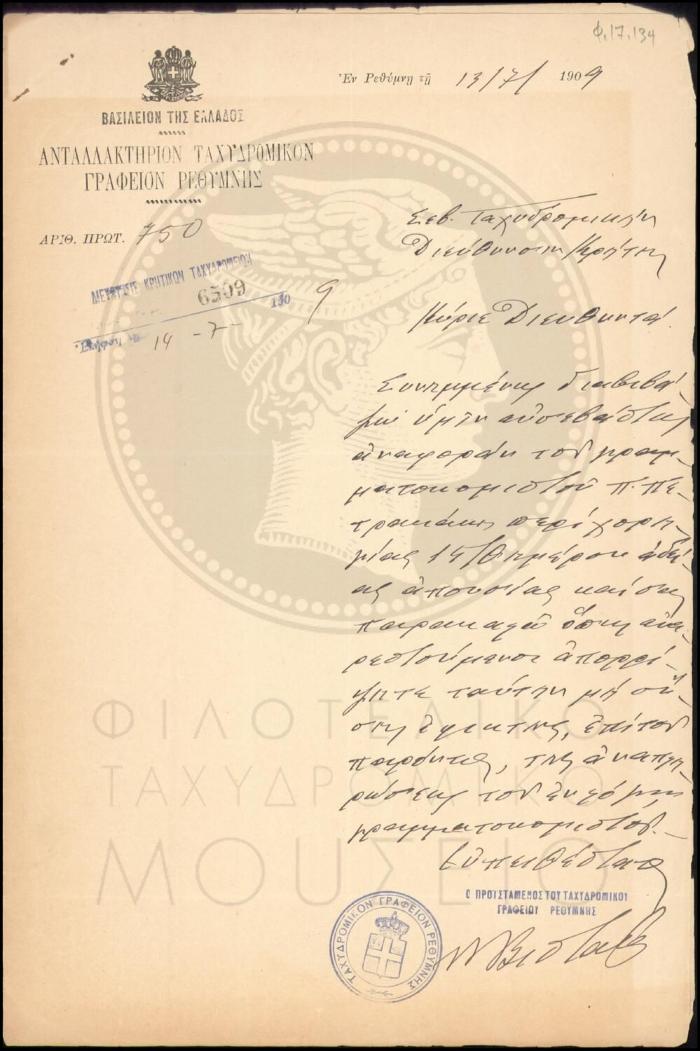 Φ.17.134
Ἐν Ρεθύμνῃ τῇ 13/7/ 1909
ΒΑΣΙΛΕΙΟΝ ΤΗΣ ΕΛΛΑΔΟΣ
ΑΝΤΑΛΛΑΚΤΗΡΙΟΝ ΤΑΧΥΔΡΟΜΙΚΟΝ
ΓΡΑΦΕΙΟΝ ΡΕΘΥΜΝΗΣ
ΑΡΙΘ. ΠΡΩΤ. 750
ΚΡΗΤΙΚΩΝ ΤΑΧΥΔΡΟΜΕΙΩΝ
6509
190 9
14 - 7 -
Σεβ. Ταχυδρομικὴν
Διεύθυνσιν Κρήτης
Κύριε Διευθυντά
Συνημμένως διαβιβά-
ζω ὑμῖν εὐσεβάστως
ἀναφορὰν τοῦ γραμ-
ματοκομιστοῦ Π. Πε-
τρακάκη περὶ χορη-
γίας 15/θημέρου ἀδεί-
ας ἀπουσίας καὶ σᾶς
παρακαλῶ ὅπως εὐα-
ρεστούμενοι ἀπορρί-
ψητε ταύτην μὴ οὔ-
σης ἐφικτῆς, ἐπὶ τοῦ
παρόντος, τῆς ἀναπλη-
ρώσεως τοῦ ἐν λόγῳ
γραμματοκομιστοῦ.-
Εὐπειθέστατος
Ο ΠΡΟΪΣΤΑΜΕΝΟΣ ΤΟΥ ΤΑΧΥΔΡΟΜΙΚΟΥ
ΓΡΑΦΕΙΟΥ ΡΕΘΥΜΝΗΣ
ΤΑΧΥΔΡΟΜΙΚΟΝ ΓΡΑΦΕΙΟΝ ΡΕΘΥΜΝΗΣ
ΦΙΛΟΤΕΛΙΚΟ
ΤΑΧΥΔΡΟΜΙΚΟ
ΜΟΥΣΕΙΟ